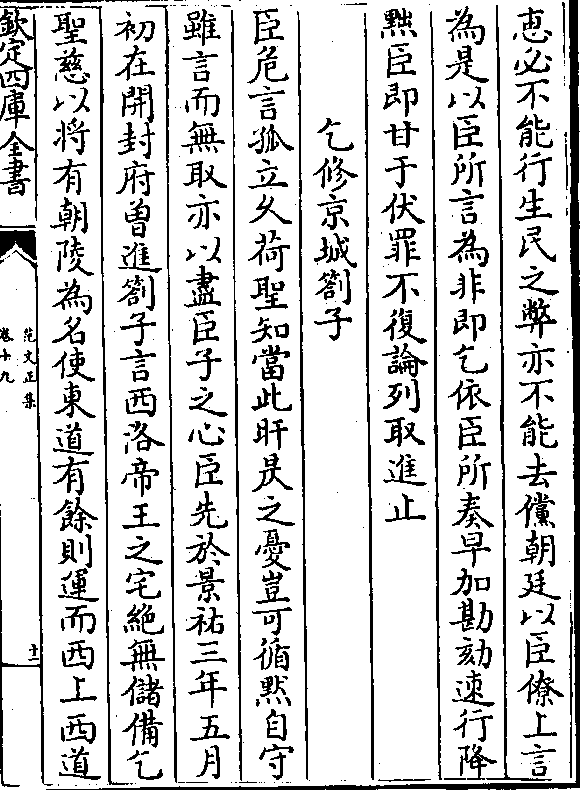 恵必不能行生民之弊亦不能去儻朝廷以臣僚上言
為是以臣所言為非即乞依臣所奏早加勘劾速行降
黜臣即甘于伏罪不復論列取進止
乞修京城劄子
臣危言孤立久荷聖知當此旰昃之憂豈可循默自守
雖言而無取亦以盡臣子之心臣先於景祐三年五月
初在開封府曾進劄子言西洛帝王之宅絶無儲備乞
聖慈以将有朝陵為名使東道有餘則運而西上西道
欽定四庫全書
范文正集
卷十九
十二